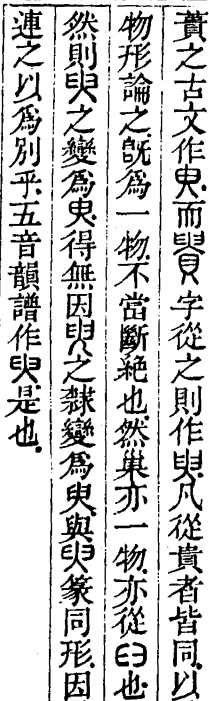 蕢之古文作臾.而貴字從之則作臾.凡從貴者皆同.以
物形論之.旣爲一物.不當斷絕也.然巢亦一物.亦從𦥑也
然則臾之變爲臾.得無因臾之隸變爲臾.與臾篆同形.因
連之以爲別乎.五音韻譜作臾是也.